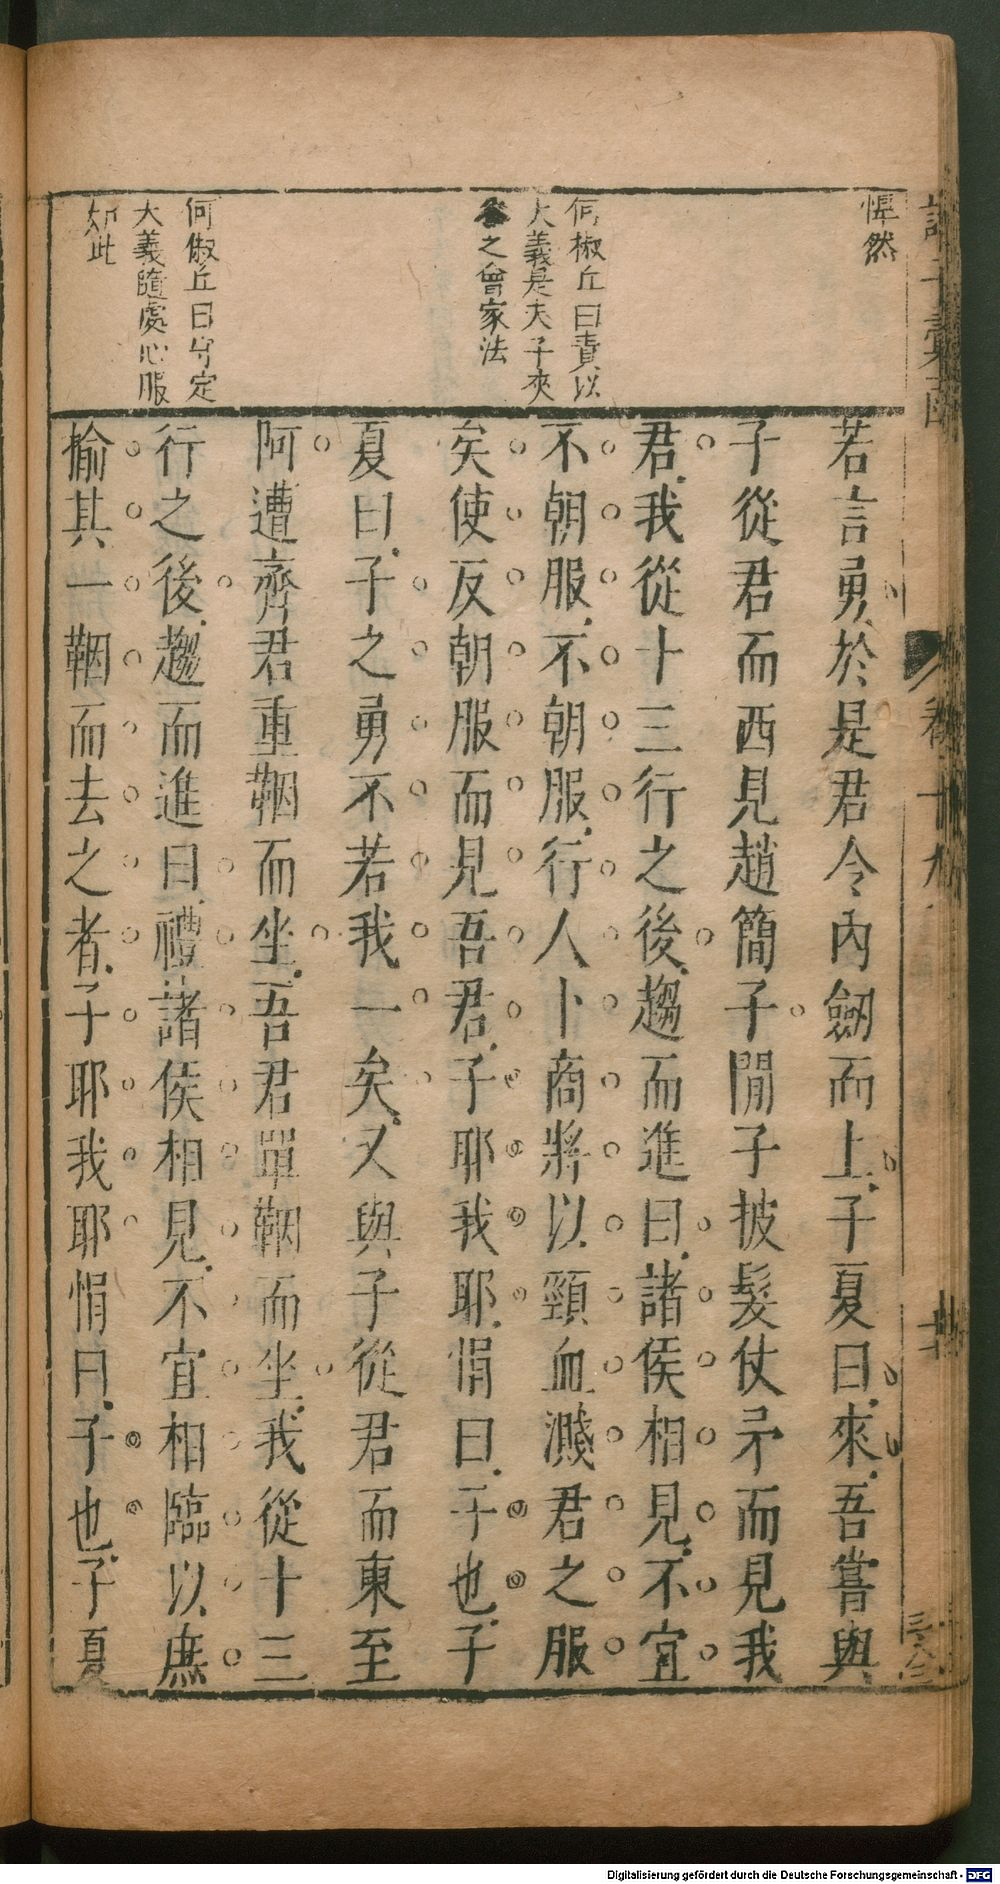 悍然
何椒丘曰責以
大義是夫子夾
谷之會家法
何俶丘曰守定
大義隨處心服
如此
若言勇於是君令內劒而上子夏曰來吾嘗與
子從君而西見趙簡子簡子披髮仗矛而見我
君我從十三行之後趨而進曰諸侯相見不宜
不朝服不朝服行人卜商將以頸血濺君之服
矣使反朝服而見吾君子耶我耶悁曰子也子
夏曰子之勇不若我一矣又與子從君而東至
阿遭齊君重鞇而坐吾君單鞇而坐我從十三
行之後趨而進曰禮諸侯相見不宜相臨以庶
揄其一鞇而去之者子耶我耶悁曰子也子夏
卷十九
Digitalisierung gefördert durch die Deutsche Forschungsgemeinschaft - DFG